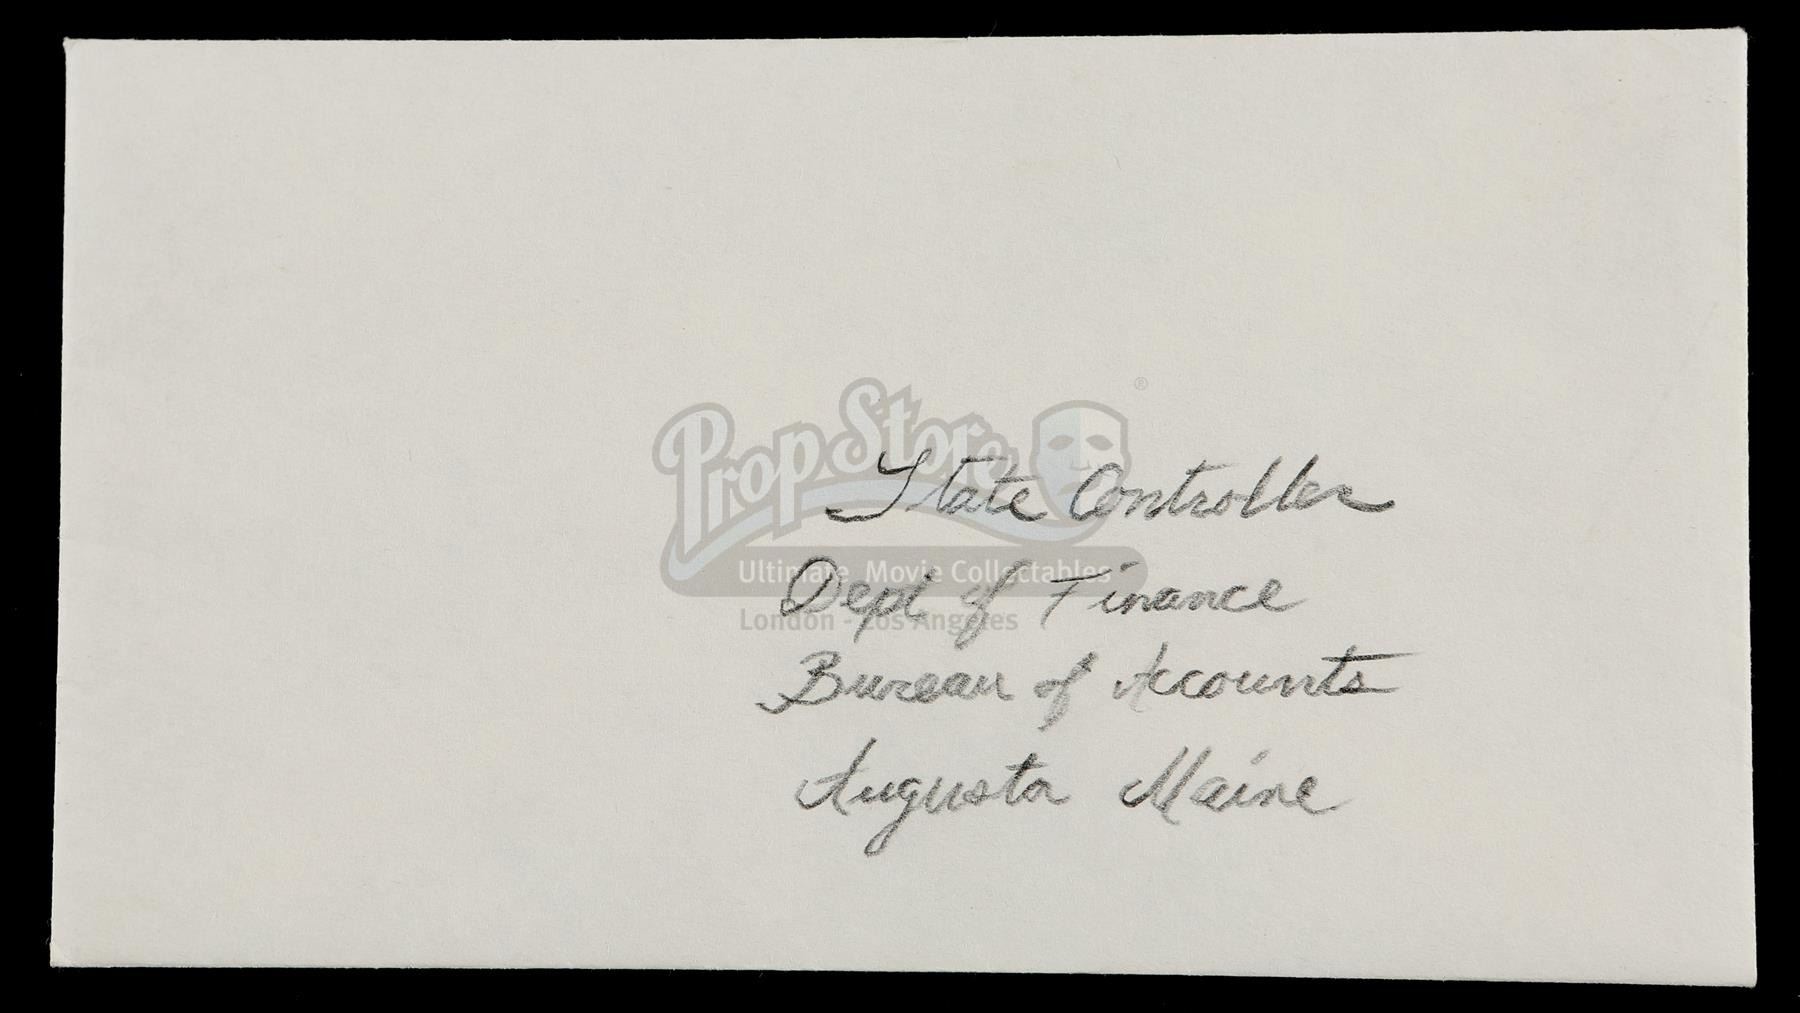 PropStore ®
State Controller
Ultimate Movie Collectables
Dept of Finance
London - Los Angeles
Bureau of Accounts
Augusta Maine